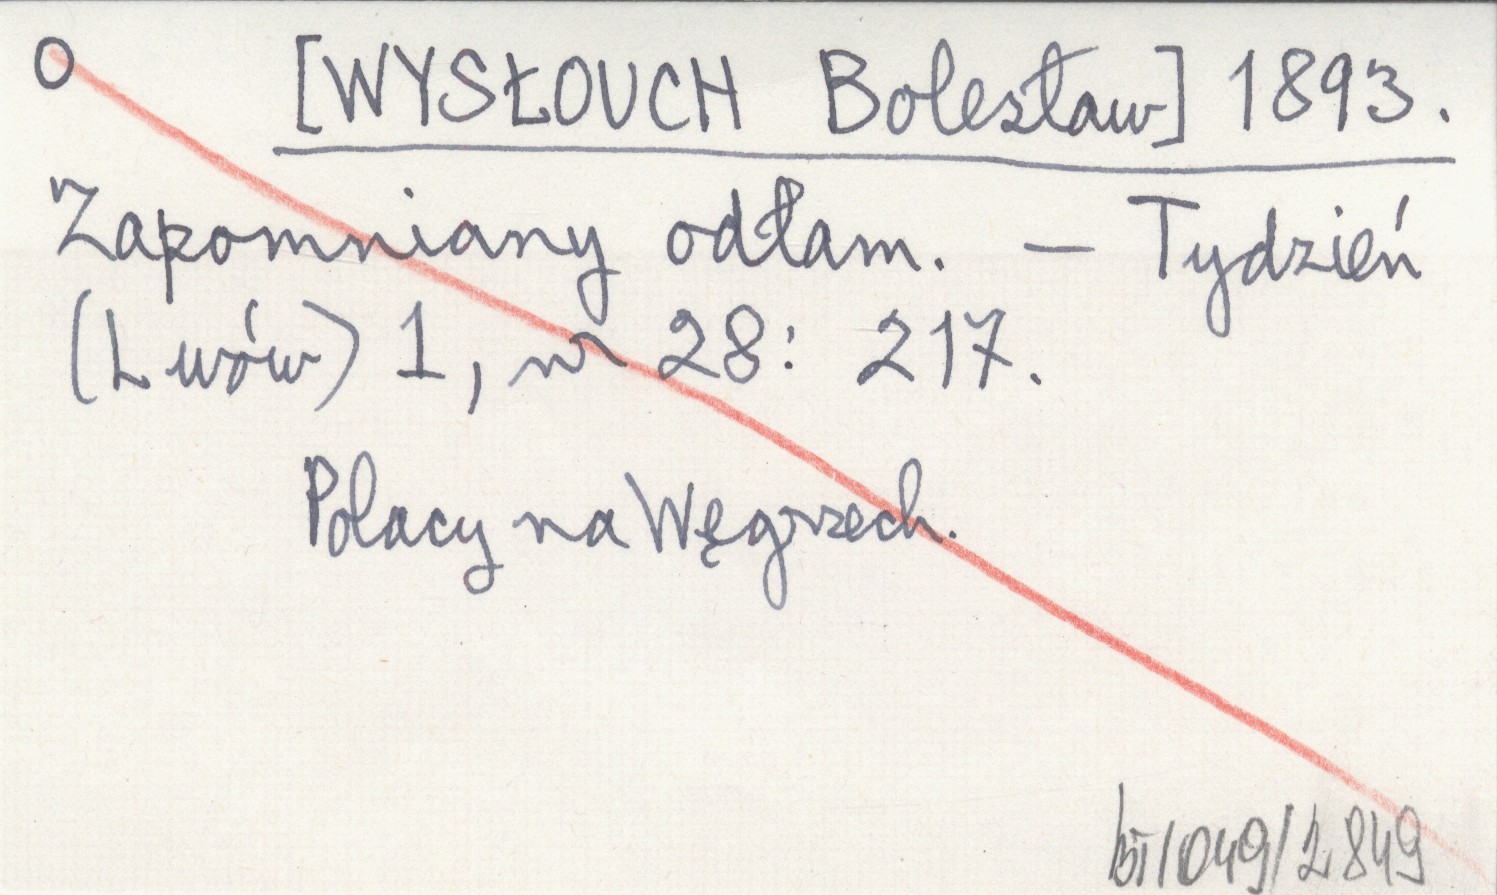 O [WYSŁOUCH Bolesław] 1893.
Zapomniany odłam. — Tydzień
(Lwów) 1, nr 28: 217.
Polacy na Węgrzech.
bi/049/2849